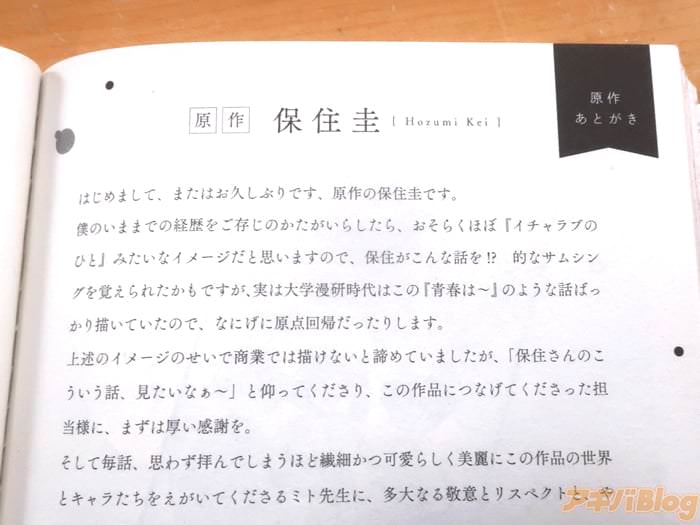 原作
あとがき
原作 保住圭 [ Hozumi Kei ]
はじめまして、またはお久しぶりです、原作の保住圭です。
僕のいままでの経歴をご存じのかたがいらしたら、おそらくほぼ『イチャラブの
ひと』みたいなイメージだと思いますので、保住がこんな話を!? 的なサムシン
グを覚えられたかもですが、実は大学漫研時代はこの『青春は〜』のような話ばっ
かり描いていたので、なにげに原点回帰だったりします。
上述のイメージのせいで商業では描けないと諦めていましたが、「保住さんのこ
ういう話、見たいなぁ〜」と仰ってくださり、この作品につなげてくださった担
当様に、まずは厚い感謝を。
そして毎話、思わず拝んでしまうほど繊細かつ可愛らしく美麗にこの作品の世界
とキャラたちをえがいてくださるミト先生に、多大なる敬意とリスペクトと、や
アキバBlog